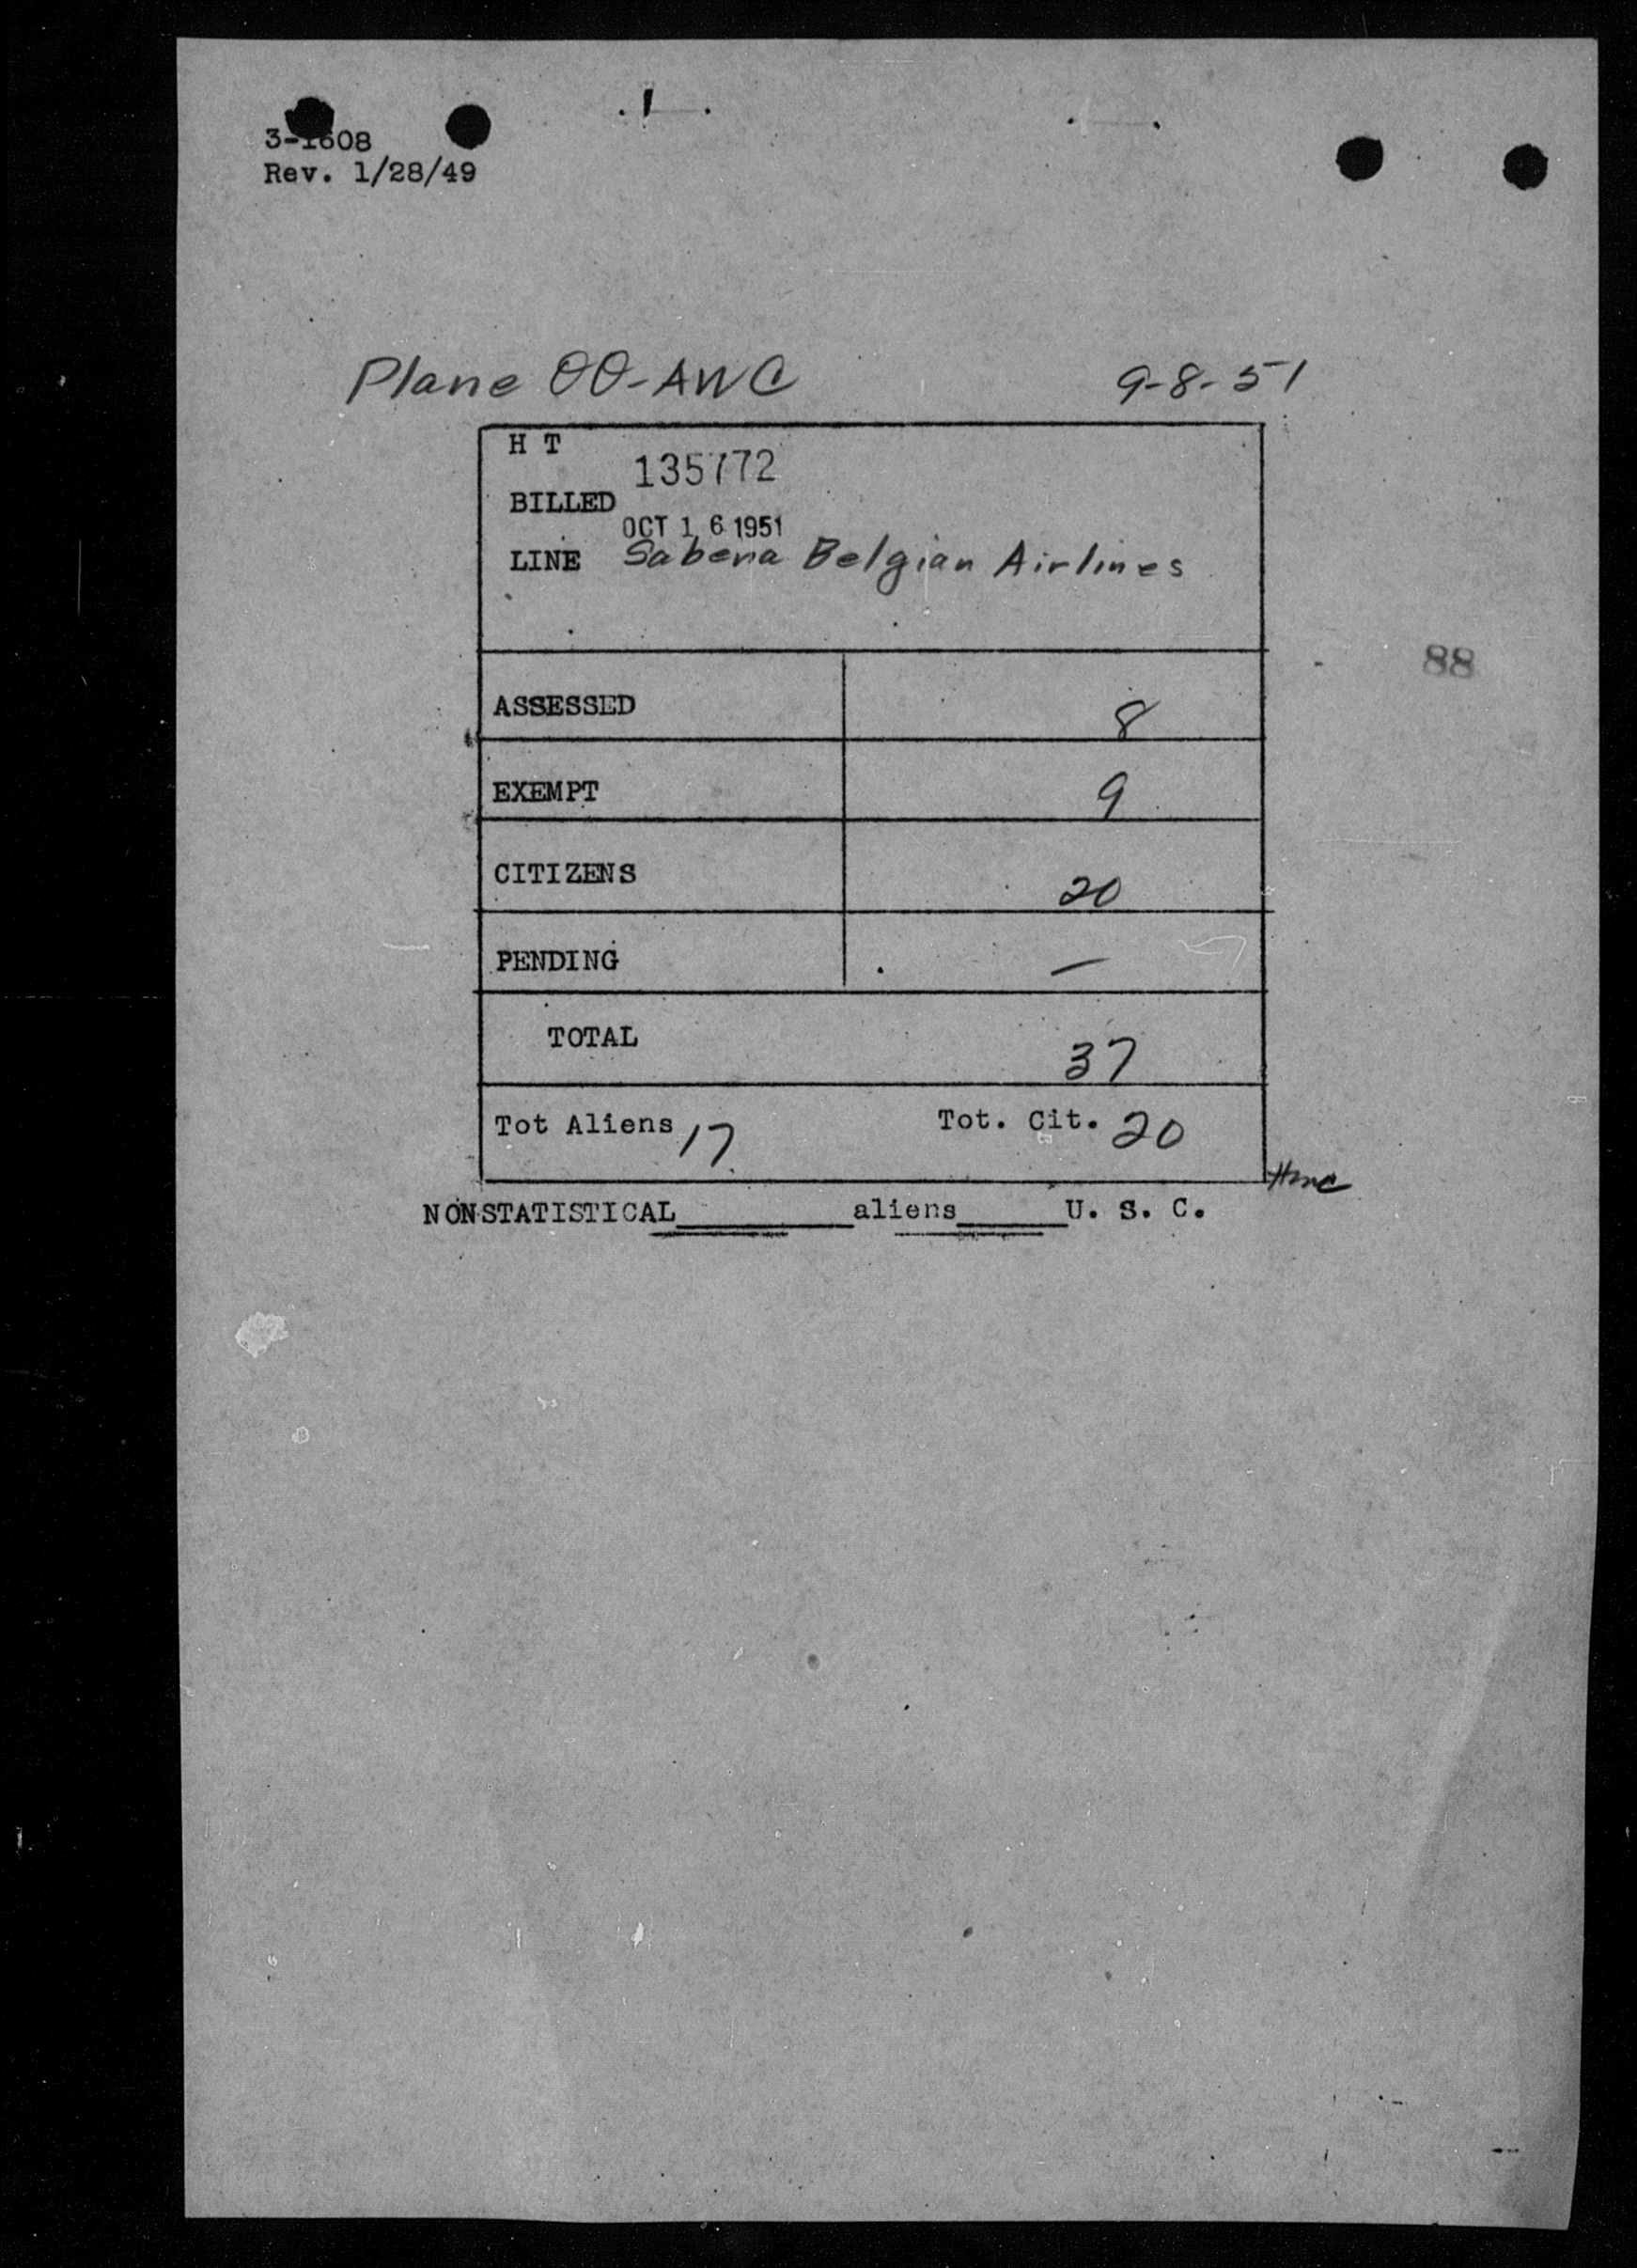 3-1608
Rev. 1/28/49
Plane OO-AWC 9-8-51
H T
135772
BILLED
OCT 16 1951
LINE Sabena Belgian Airlines
88
ASSESSED 8
EXEMPT 9
CITIZENS 20
PENDING —
TOTAL 37
Tot Aliens 17 Tot. Cit. 20
NONSTATISTICAL________aliens_____U. S. C.